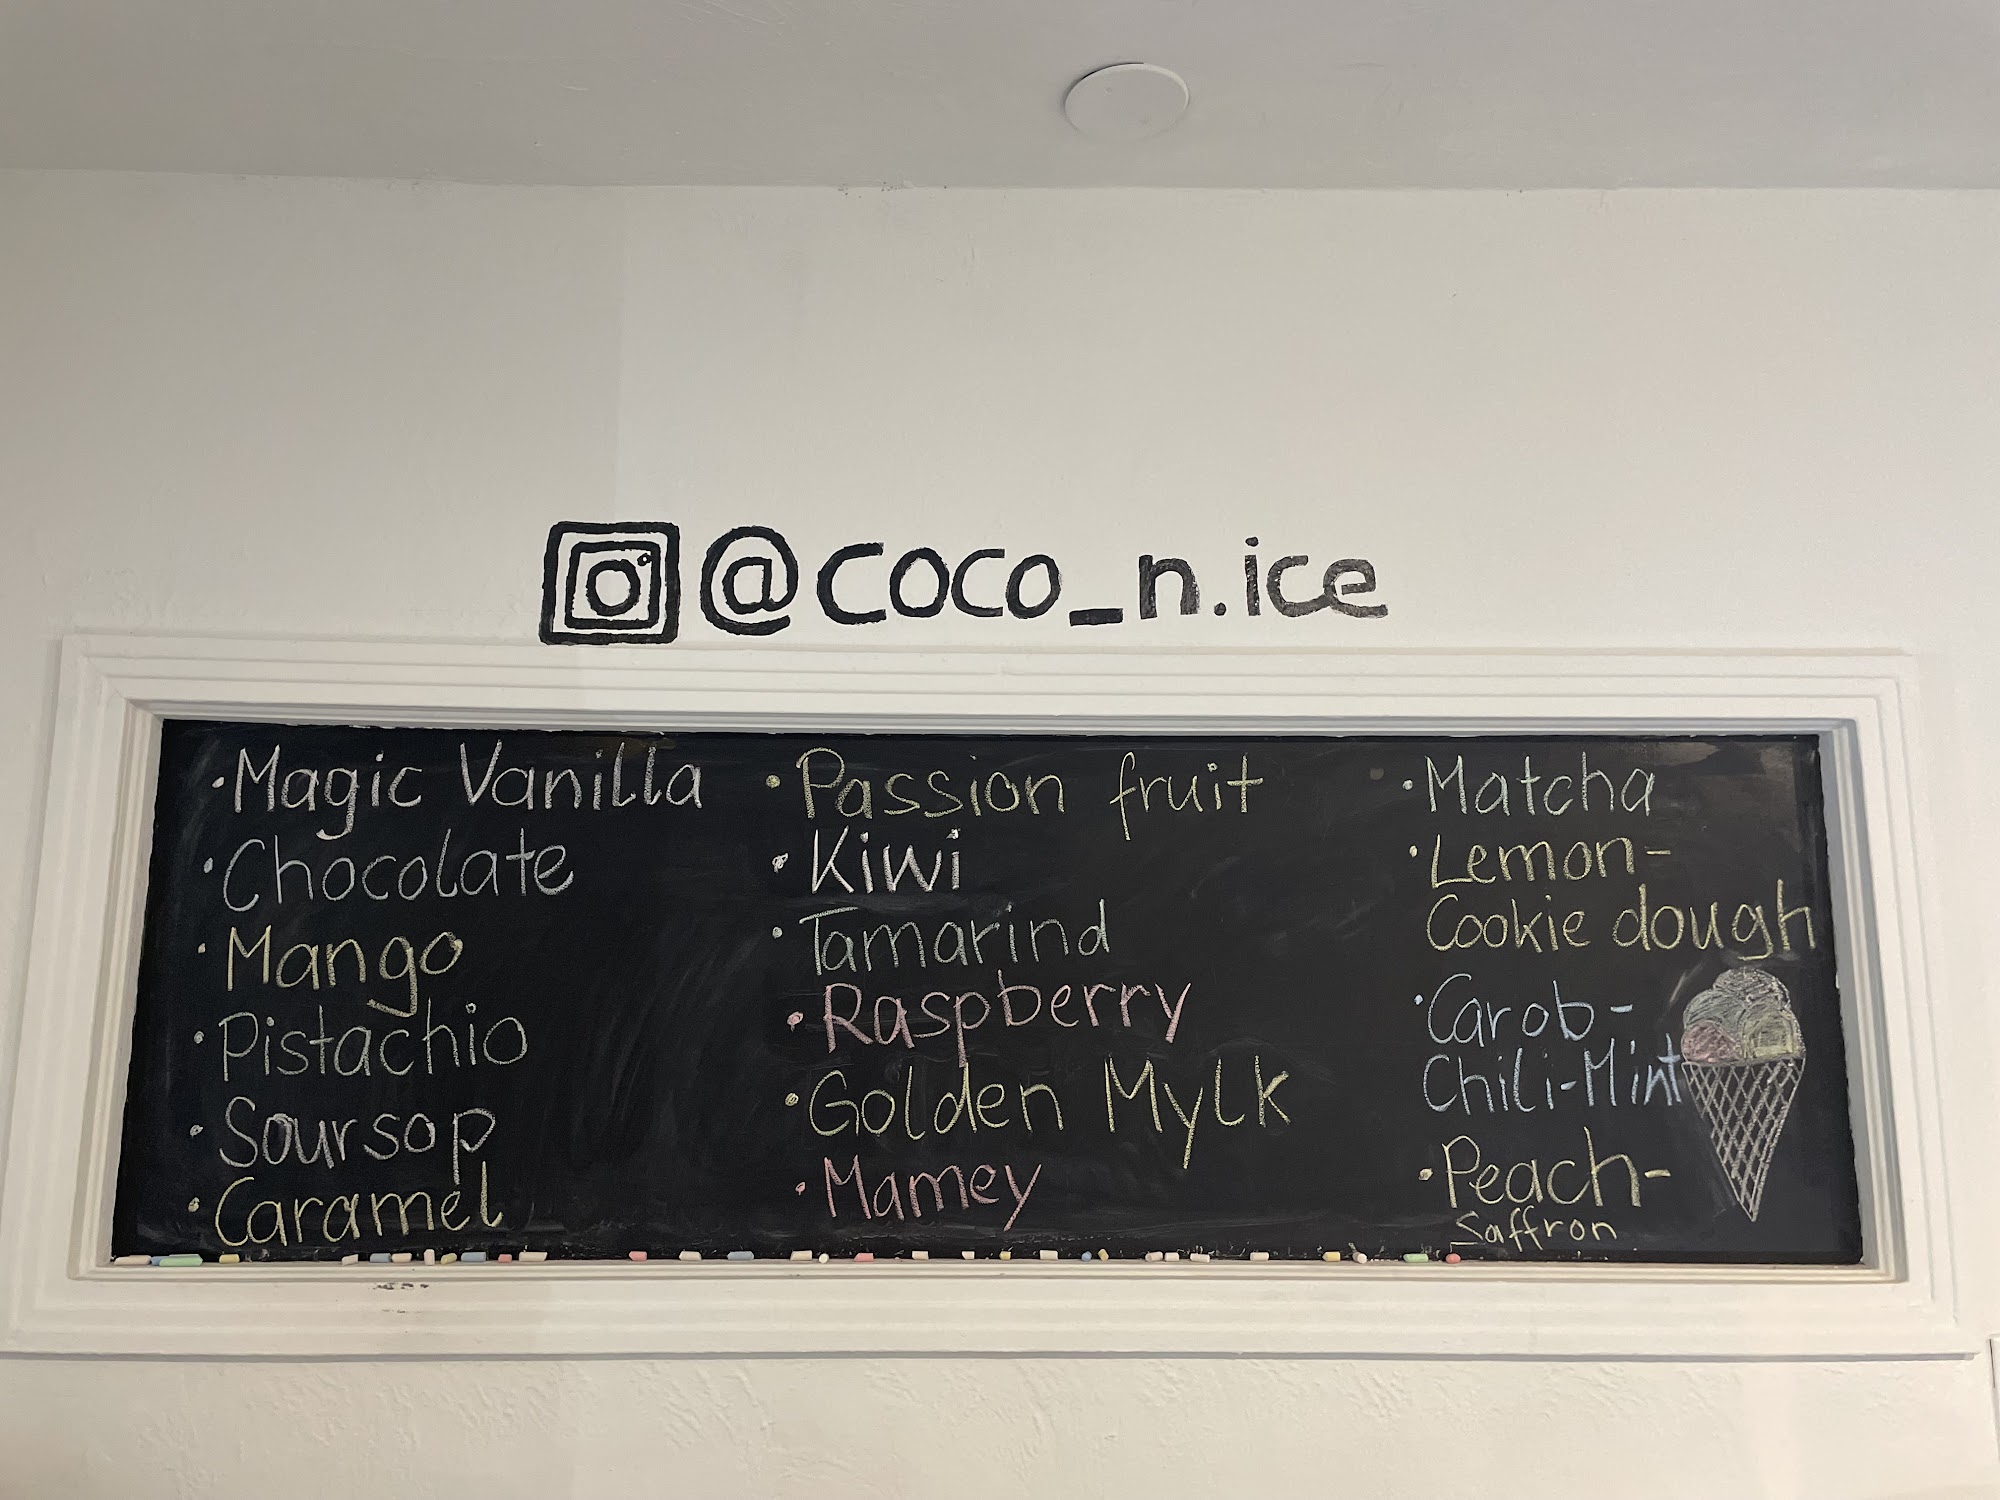 @coco_n.ice
·Magic Vanilla
·Chocolate
·Mango
·Pistachio
·Soursop
·Caramel
·Passion fruit
·Kiwi
·Tamarind
·Raspberry
·Golden Mylk
·Mamey
·Matcha
·Lemon-
Cookie dough
·Carob-
Chili-Mint
·Peach-
Saffron